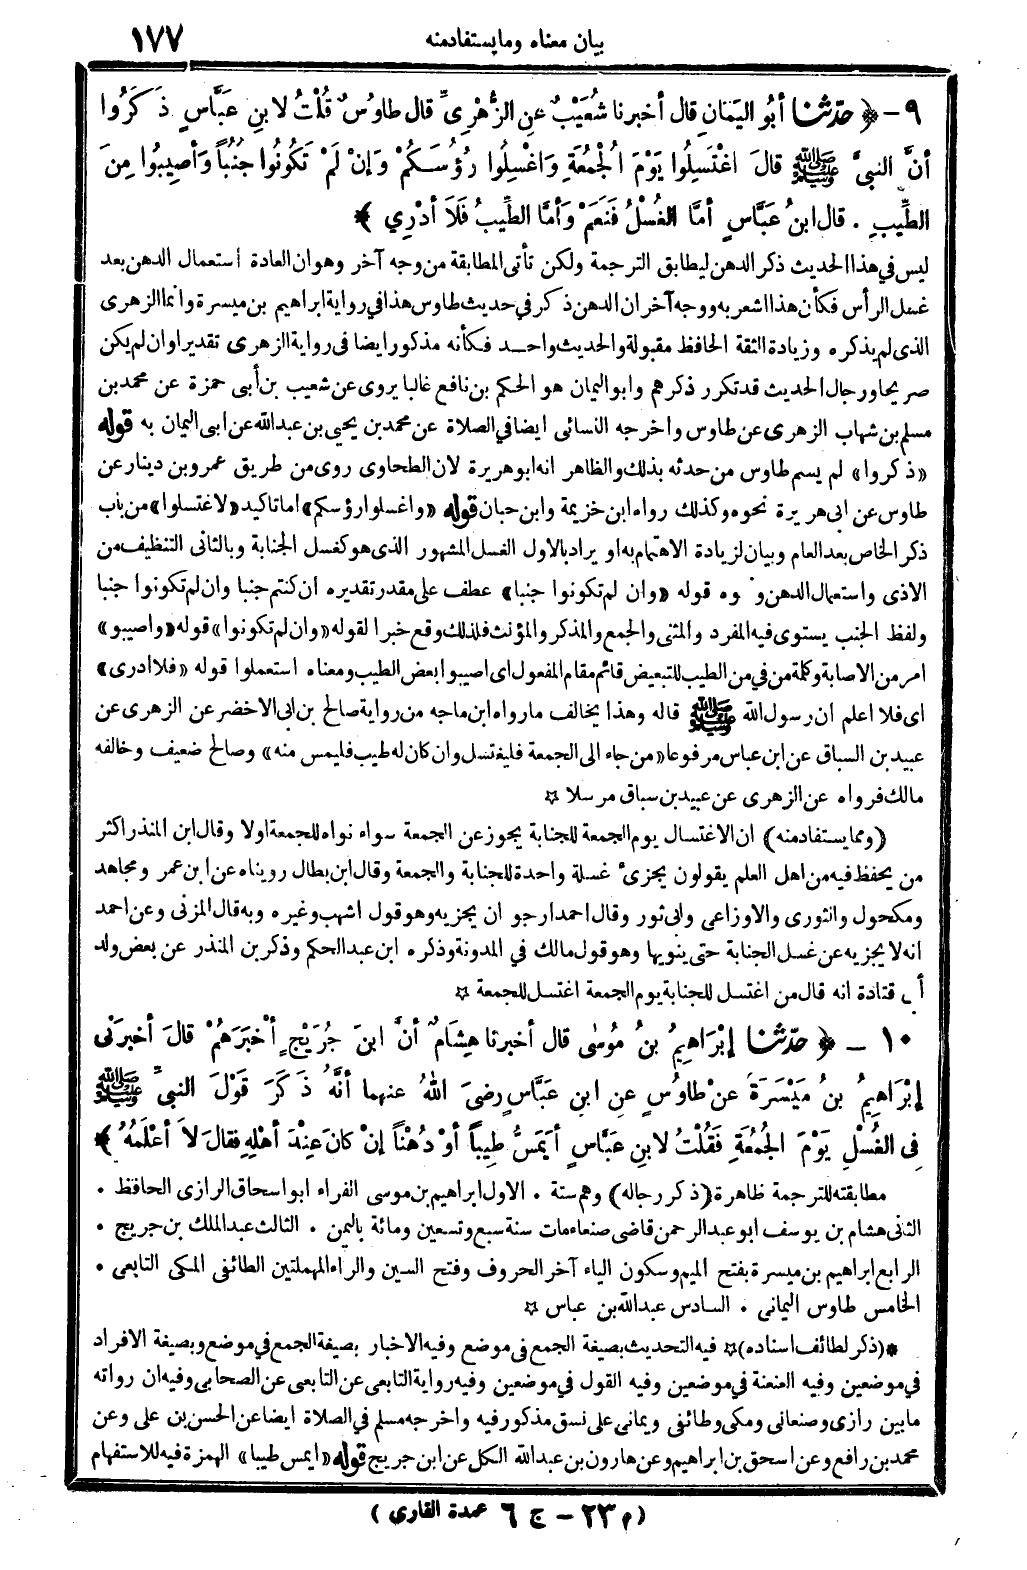 بيان معناه وما يستفاد منه ١٧٧
٩ - ﴿ حدّثنا أبُو اليَمَانِ قال أخبرنا شُعَيْبٌ عنِ الزُّهْرِيِّ قال طاوُسٌ قُلْتُ لابنِ عَبَّاسٍ ذَكَرُوا
أنَّ النبيَّ ﷺ قالَ اغْتَسِلُوا يَوْمَ الْجُمُعَةِ وَاغْسِلُوا رُؤُسَكُمْ وَإنْ لَمْ تَكُونُوا جُنُباً وَأصِيبُوا مِنَ
الطِّيبِ . قال ابنُ عَبَّاسٍ أمَّا الغُسْلُ فَنَعَمْ وَأمَّا الطِّيبُ فَلاَ أدْرِي ﴾
ليس في هذا الحديث ذكر الدهن ليطابق الترجمة ولكن تأتى المطابقة من وجه آخر وهو ان العادة أستعمال الدهن بعد
غسل الرأس فكأن هذا اشعر به ووجه آخر ان الدهن ذكر في حديث طاوس هذا في رواية ابراهيم بن ميسرة وانما الزهرى
الذى لم يذكره وزيادة الثقة الحافظ مقبولة والحديث واحد فكأنه مذكور ايضا فى رواية الزهرى تقديرا وان لم يكن
صريحا ورجال الحديث قد تكرر ذكرهم وابو اليمان هو الحكم بن نافع غالبا يروى عن شعيب بن أبى حمزة عن محمد بن
مسلم بن شهاب الزهرى عن طاوس واخرجه النسائى ايضا في الصلاة عن محمد بن يحيى بن عبد الله عن ابى اليمان به قوله
«ذكروا» لم يسم طاوس من حدثه بذلك والظاهر انه ابو هريرة لان الطحاوى روى من طريق عمرو بن دينار عن
طاوس عن ابى هريرة نحوه وكذلك رواه ابن خزيمة وابن حبان قوله «واغسلوا رؤسكم» اما تاكيد «لاغتسلوا» من باب
ذكر الخاص بعد العام وبيان لزيادة الاهتمام به او يراد بالاول الغسل المشهور الذى هو كغسل الجنابة وبالثانى التنظيف من
الاذى واستعمال الدهن و وه قوله «وان لم تكونوا جنبا» عطف على مقدر تقديره ان كنتم جنبا وان لم تكونوا جنبا
ولفظ الجنب يستوى فيه المفرد والمثنى والجمع والمذكر والمؤنث فلذلك وقع خبرا لقوله «وان لم تكونوا» قوله «واصيبو»
امر من الاصابة وكلمة من في من الطيب للتبعيض قائم مقام المفعول اى اصيبوا بعض الطيب ومعناه استعملوا قوله «فلا ادرى»
اى فلا اعلم ان رسول الله ﷺ قاله وهذا يخالف مارواه ابن ماجه من رواية صالح بن ابى الاخضر عن الزهرى عن
عبيد بن السباق عن ابن عباس مرفوعا «من جاء الى الجمعة فليغتسل وان كان له طيب فليمس منه» وصالح ضعيف وخالفه
مالك فرواه عن الزهرى عن عبيد بن سباق مرسلا ☆
(ومما يستفاد منه) ان الاغتسال يوم الجمعة للجنابة يجوز عن الجمعة سواء نواه للجمعة اولا وقال ابن المنذر اكثر
من يحفظ فيه من اهل العلم يقولون يجزىء غسلة واحدة للجنابة والجمعة وقال ابن بطال رويناه عن ابن عمر ومجاهد
ومكحول والثورى والاوزاعى وابى ثور وقال احمد ارجو ان يجزيه وهو قول اشهب وغيره وبه قال المزنى وعن احمد
انه لا يجزيه عن غسل الجنابة حتى ينويها وهو قول مالك في المدونة وذكره ابن عبد الحكم وذكر بن المنذر عن بعض ولد
أبى قتادة انه قال من اغتسل للجنابة يوم الجمعة اغتسل للجمعة ☆
١٠ - ﴿ حدّثنا إبْرَاهِيمُ بنُ مُوسٰى قال أخبرنا هِشَامٌ أنَّ ابنَ جُرَيْجٍ أخْبَرَهُمْ قالَ أخبرَنى
إبْرَاهِيمُ بنُ مَيْسَرَةَ عنْ طاوُسٍ عنِ ابنِ عَبَّاسٍ رضىَ اللهُ عنهما أنَّهُ ذَكَرَ قَوْلَ النبيِّ ﷺ
فِى الغُسْلِ يَوْمَ الجُمُعَةِ فَقُلْتُ لابنِ عَبَّاسٍ أيَمَسُّ طِيباً أوْ دُهْناً إنْ كانَ عِنْدَ أهْلِهِ فقالَ لاَ أعْلَمُهُ ﴾
مطابقته للترجمة ظاهرة (ذكر رجاله) وهم ستة . الاول ابراهيم بن موسى الفراء ابو اسحاق الرازى الحافظ .
الثنى هشام بن يوسف ابو عبد الرحمن قاضى صنعاء مات سنة سبع وتسعين ومائة باليمن . الثالث عبد الملك بن جريج .
الرابع ابراهيم بن ميسرة بفتح الميم وسكون الياء آخر الحروف وفتح السين والراء المهملتين الطائفى المكى التابعى .
الخامس طاوس اليمانى . السادس عبد الله بن عباس ☆
*(ذكر لطائف اسناده)☆ فيه التحديث بصيغة الجمع فى موضع وفيه الاخبار بصيغة الجمع في موضع وبصيغة الافراد
في موضعين وفيه العنعنة في موضعين وفيه القول في موضعين وفيه رواية التابعى عن التابعى عن الصحابى وفيه ان رواته
مابين رازى وصنعانى ومكى وطائفى ويمانى على نسق مذكور فيه واخرجه مسلم في الصلاة ايضا عن الحسن بن على وعن
محمد بن رافع وعن اسحق بن ابراهيم وعن هارون بن عبد الله الكل عن ابن جريج قوله «ايمس طيبا» الهمزة فيه للاستفهام
(م ٢٣ - ج ٦ عمدة القارى)